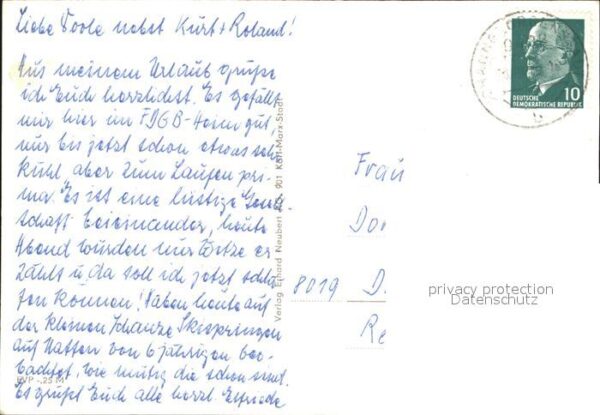 Liebe Doole nebst Kurt + Roland!
Aus meinem Urlaub grüße
ich Euch herzlichst. Es gefällt
mir hier im FDGB-Heim gut,
nur bis jetzt schon etwas sehr
kühl, aber zum Laufen pri-
ma. Es ist eine lustige Gesell-
schaft beieinander, heute
Abend wurden nur Witze er-
zählt u. da soll ich jetzt schla-
fen können! Haben heute auf
der kleinen Schanze Skispringen
auf Matten von 6 jährigen beo-
bachtet, wie mutig die schon sind.
Es grüßt Euch alle herzl. Elfriede
EVP -,25 M
Verlag Erhard Neubert 901 Karl-Marx-Stadt
10
DEUTSCHE
DEMOKRATISCHE REPUBLIK
b
Frau
Dor
8019 D.
Re
privacy protection
Datenschutz